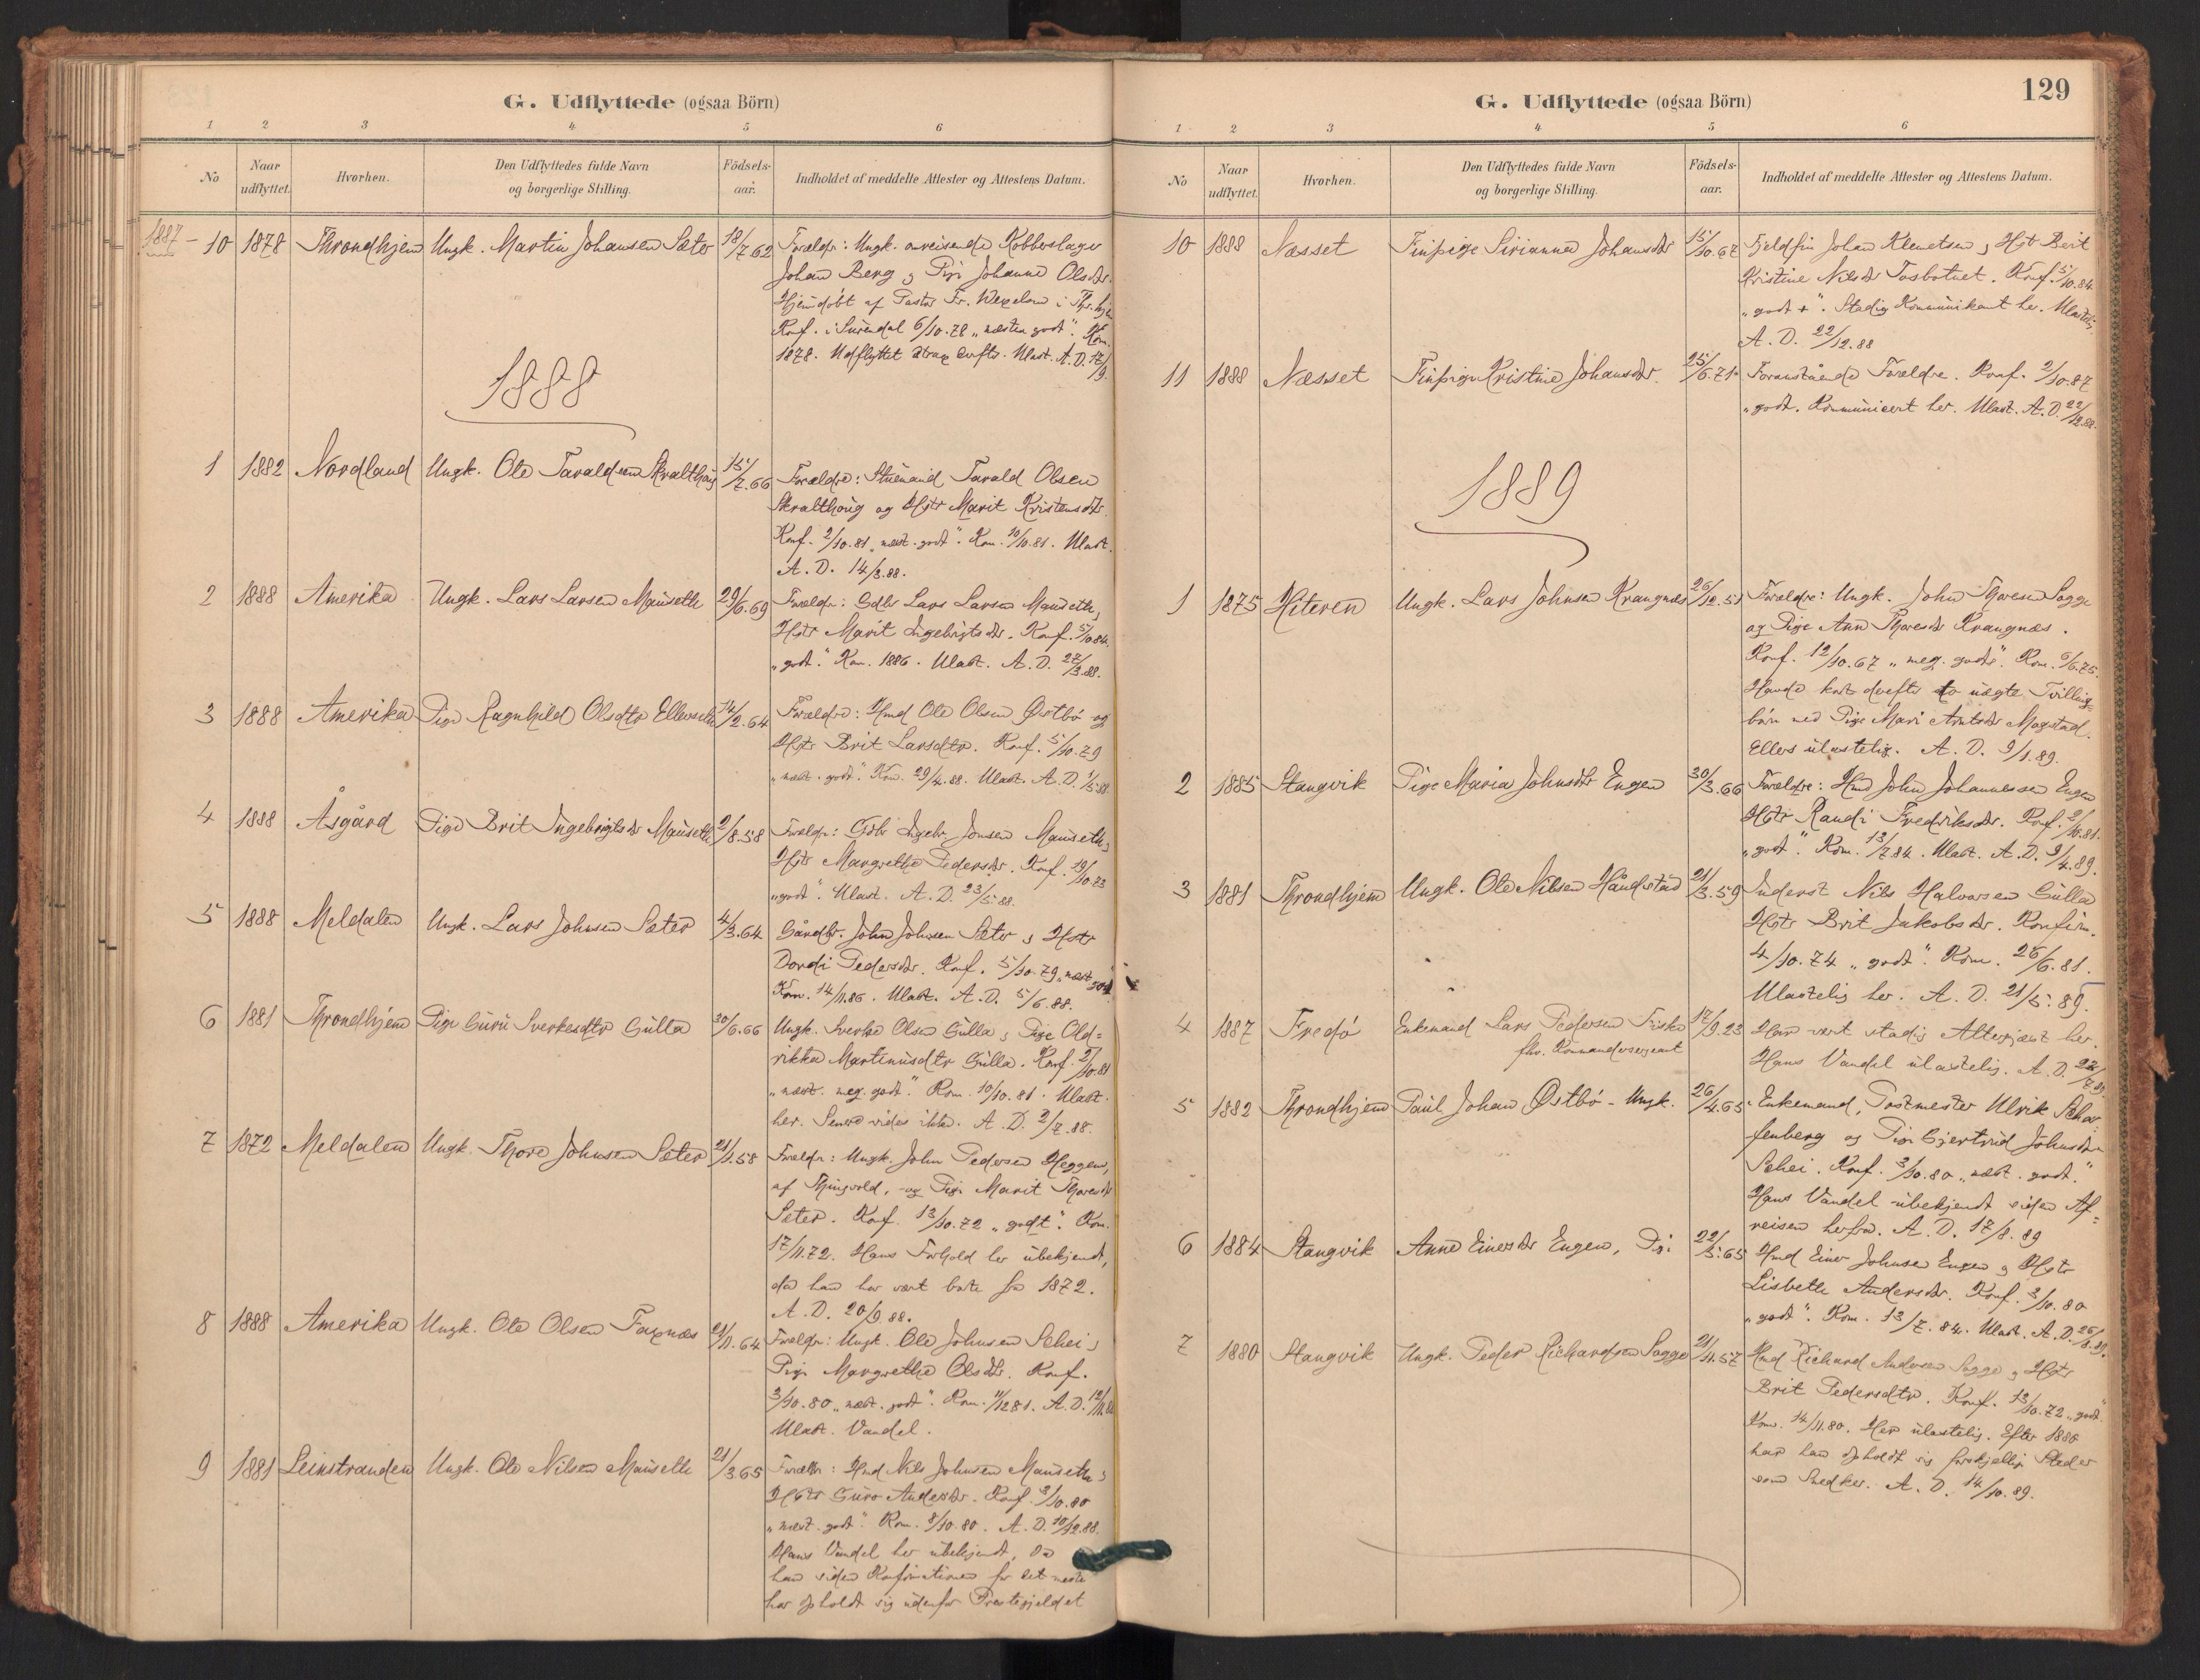 G. Udflyttede (ogsaa Börn)
1 2 3 4 5 6
No
Naar udflyttet.
Hvorhen.
Den Udflyttedes fulde Navn og borgerlige Stilling.
Födsels-aar.
Indholdet af meddelte Attester og Attestens Datum.
1887 - 10 1878 Throndhjem Ungk. Martin Johansen Sæter 18/7.62 Forældr: Ungk. omreisende Kobberslager
Johan Berg og Pige Johanna Olsdtr.
Hjemdöbt af Pastor Fr. Wexelsen i Thr.hjem
Konf. i Surendal 6/10.78 „næsten godt". Kom.
1878. Udflyttet strax derefter. Ulast. A.D. 17/9.
1888
1 1882 Nordland Ungk. Ole Taraldsen Skralthaug 15/7.66 Forældre: Tarald Olsen
Skralthoug og Hstr Marit Kristensdtr.
Konf. 2/10.81 „næst. godt". Kom. 10/10.81. Ulast.
A.D. 14/3.88.
2 1888 Amerika Ungk. Lars Larsen Mauseth 29/6.69 Forældr: Gdbr Lars Larsen Mauseth,
Hstr Marit Ingebrigtsdtr. Konf. 5/10.84.
„godt." Kom. 1886. Ulast. A.D. 27/3.88.
3 1888 Amerika Pige Ragnhild Olsdtr Ellevseth 14/2.64 Forældre: Hmd Ole Olsen Østbö og
Hstr Brit Larsdtr. Konf. 5/10.79
„næst. godt." Kom. 29/4.88. Ulast. A.D. 1/5.88
4 1888 Åsgård Pige Brit Ingebrigtsdr Mauseth 2/8.58 Forældr: Gdbr Ingebr. Jonsen Mauseth,
Hstr Margrethe Pedersdtr. Konf. 19/10.73
„godt". Ulast. A.D. 23/5.88.
5 1888 Meldalen Ungk. Lars Johnsen Sæter 4/3.64 Gårdbr. John Johnsen Sæter og Hstr
Dordi Pedersdtr. Konf. 5/10.79 „næst godt"
Kom. 14/11.86. Ulast. A.D. 5/6.88.
6 1881 Throndhjem Pige Guru Sverkesdtr Gulla 30/6.66 Ungk. Sverke Olsen Gulla og Pige Old=
rikka Martinusdtr Gulla. Konf. 2/10.81
„næst. meg. godt." Kom. 10/10.81. Ulast.
her. Senere vides ikke. A.D. 2/7.88.
7 1872 Meldalen Ungk. Thore Johnsen Sæter 21/1.58 Forældr: Ungk. John Pedersen Heggem,
af Thingvold, og Pige Marit Thoresdtr
Sæter. Konf. 13/10.72 „godt". Kom.
17/11.72. Hans Forhold her ubekjendt,
da han har vært borte fra 1872.
A.D. 20/9.88.
8 1888 Amerika Ungk. Ole Olsen Faxnæs 21/11.64 Forældr: Ungk. Ole Johnsen Schei,
Pige Margrethe Olsdtr. Konf.
3/10.80 „næst. godt". Kom. 11/12 81. A.D. 12/11.88
Ulast. Vandel.
9 1881 Leinstranden Ungk. Ole Nilsen Mauseth 21/3.65 Forældr: Hmd Nils Johnsen Mauseth,
Hstr Guro Andersdr. Konf. 3/10.80
„næst. godt." Kom. 8/10.80. A.D. 10/12.88.
Hans Vandel her ubekjendt, da
han siden Konfirmationen for det meste
har opholdt sig udenfor Præstegjeldet
129
G. Udflyttede (ogsaa Börn)
1 2 3 4 5 6
No
Naar udflyttet.
Hvorhen.
Den Udflyttedes fulde Navn og borgerlige Stilling.
Födsels-aar.
Indholdet af meddelte Attester og Attestens Datum.
10 1888 Næsset Finpige Sirianna Johansdtr 15/10.67 Fjeldfin Johan Klemetsen, Hstr Berit
Kristine Nilsdtr Tosbotnet. Konf. 5/10.84
„godt +". Stadig Kommunikant her. Ulastelig.
A.D. 22/12.88
11 1888 Næsset Finpige Kristine Johansdtr. 25/6.71. Foranstående Forældre. Konf. 2/10.87
„godt. Kommunicert her. Ulast. A.D. 22/12.88.
1889
1 1875 Hiteren Ungk. Lars Johnsen Krangnæs 26/12.51 Forældre: Ungk. John Thoresen Sogge
og Pige Ane Thoresdtr Krangnæs.
Konf. 12/10.67 „meg. godt". Kom. 6/6.75.
Havde kort derefter to uægte Tvilling=
börn med Pige Mari Arntsdtr Mogstad.
Ellers ulastelig. A.D. 9/1.89.
2 1885 Stangvik Pige Maria Johnsdtr Engen 30/3.66 Forældre: Hmd John Johannessen Engen
Hstr Randi Fredriksdtr. Konf. 2/10.81.
„godt". Kom. 13/7.84. Ulast. A.D. 9/4.89.
3 1881 Throndhjem Ungk. Ole Nilsen Håndstad 21/3.59 Inderst Nils Halvorsen Gulla
Hstr Brit Jakobsdtr. Konfirm.
4/10.74 „godt". Kom. 26/6.81.
Ulastelig her. A.D. 21/5.89.
4 1887 Fredö Enkemand Lars Pedersen Fiske 17/9.23 Har vært stadig Altergjæst her.
fhv. Kommandersergeant
Hans Vandel ulastelig. A.D. 22/7.89.
5 1882 Throndhjem Paul Johan Østbö - Ungk. 26/4.65 Enkemand, Postmester Ulrik Schar=
fenberg og Pige Gjertrud Johnsdtr
Schei. Konf. 3/10.80 „næst. godt."
Hans Vandel ubekjendt siden Af=
reisen herfra. A.D. 17/8.89
6 1884 Stangvik Anne Einersdtr Engen, Pi. 22/5.65 Hmd Einer Johnsen Engen og Hstr
Lisbeth Andersdtr. Konf. 3/10.80
„godt". Kom. 13/7.84. Ulast. A.D. 26/8.89.
7 1880 Stangvik Ungk. Peder Richardsen Sogge 21/4.57 Hmd Richard Andersen Sogge, Hstr
Brit Pedersdtr. Konf. 13/10.72 „godt"
Kom. 14/11.80. Her ulastelig. Efter 1880
har han opholdt sig forskjellige Steder
som Snedker. A.D. 14/10.89.